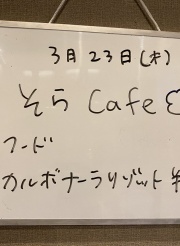 3月23日(木)
そら Cafe
フード
カルボナーラリゾット